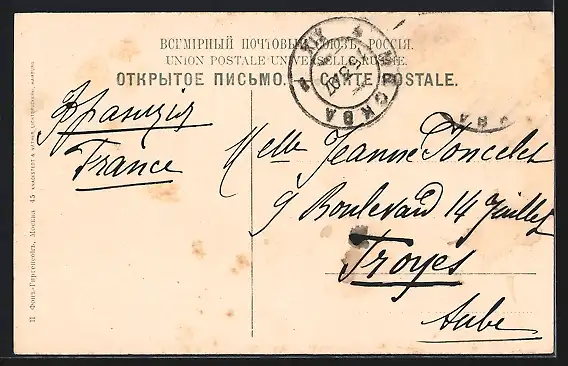 ВСЕМІРНЫЙ ПОЧТОВЫЙ СОЮЗЪ, РОССІЯ.
UNION POSTALE UNIVERSELLE. RUSSIE.
ОТКРЫТОЕ ПИСЬМО. — CARTE POSTALE.
МОСКВА
Франція
France
Melle Jeanne Poncelet
9 Boulevard 14 Juillet
Troyes
Aube
П. Фонъ-Гиргенсонъ, Москва 45